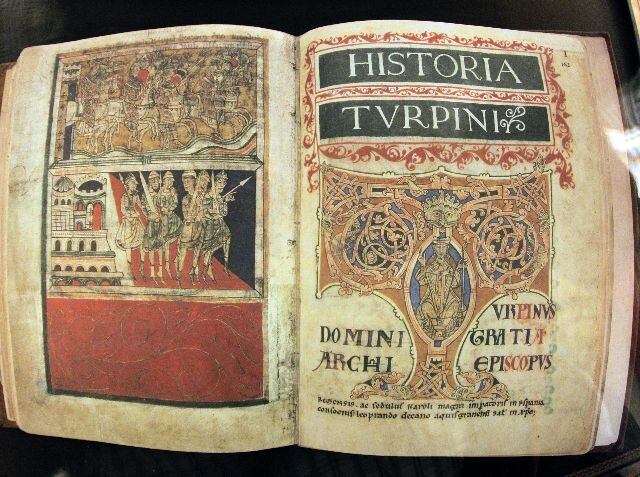 HISTORIA
TVRPINI
1
162
T
VRPINVS
DOMINI GRATIA
ARCHI EPISCOPVS
REMENSIS. ac sedulus karoli magni imperatoris in hispania
consocius: leoprando decano aquisgranensi sal in xpo;